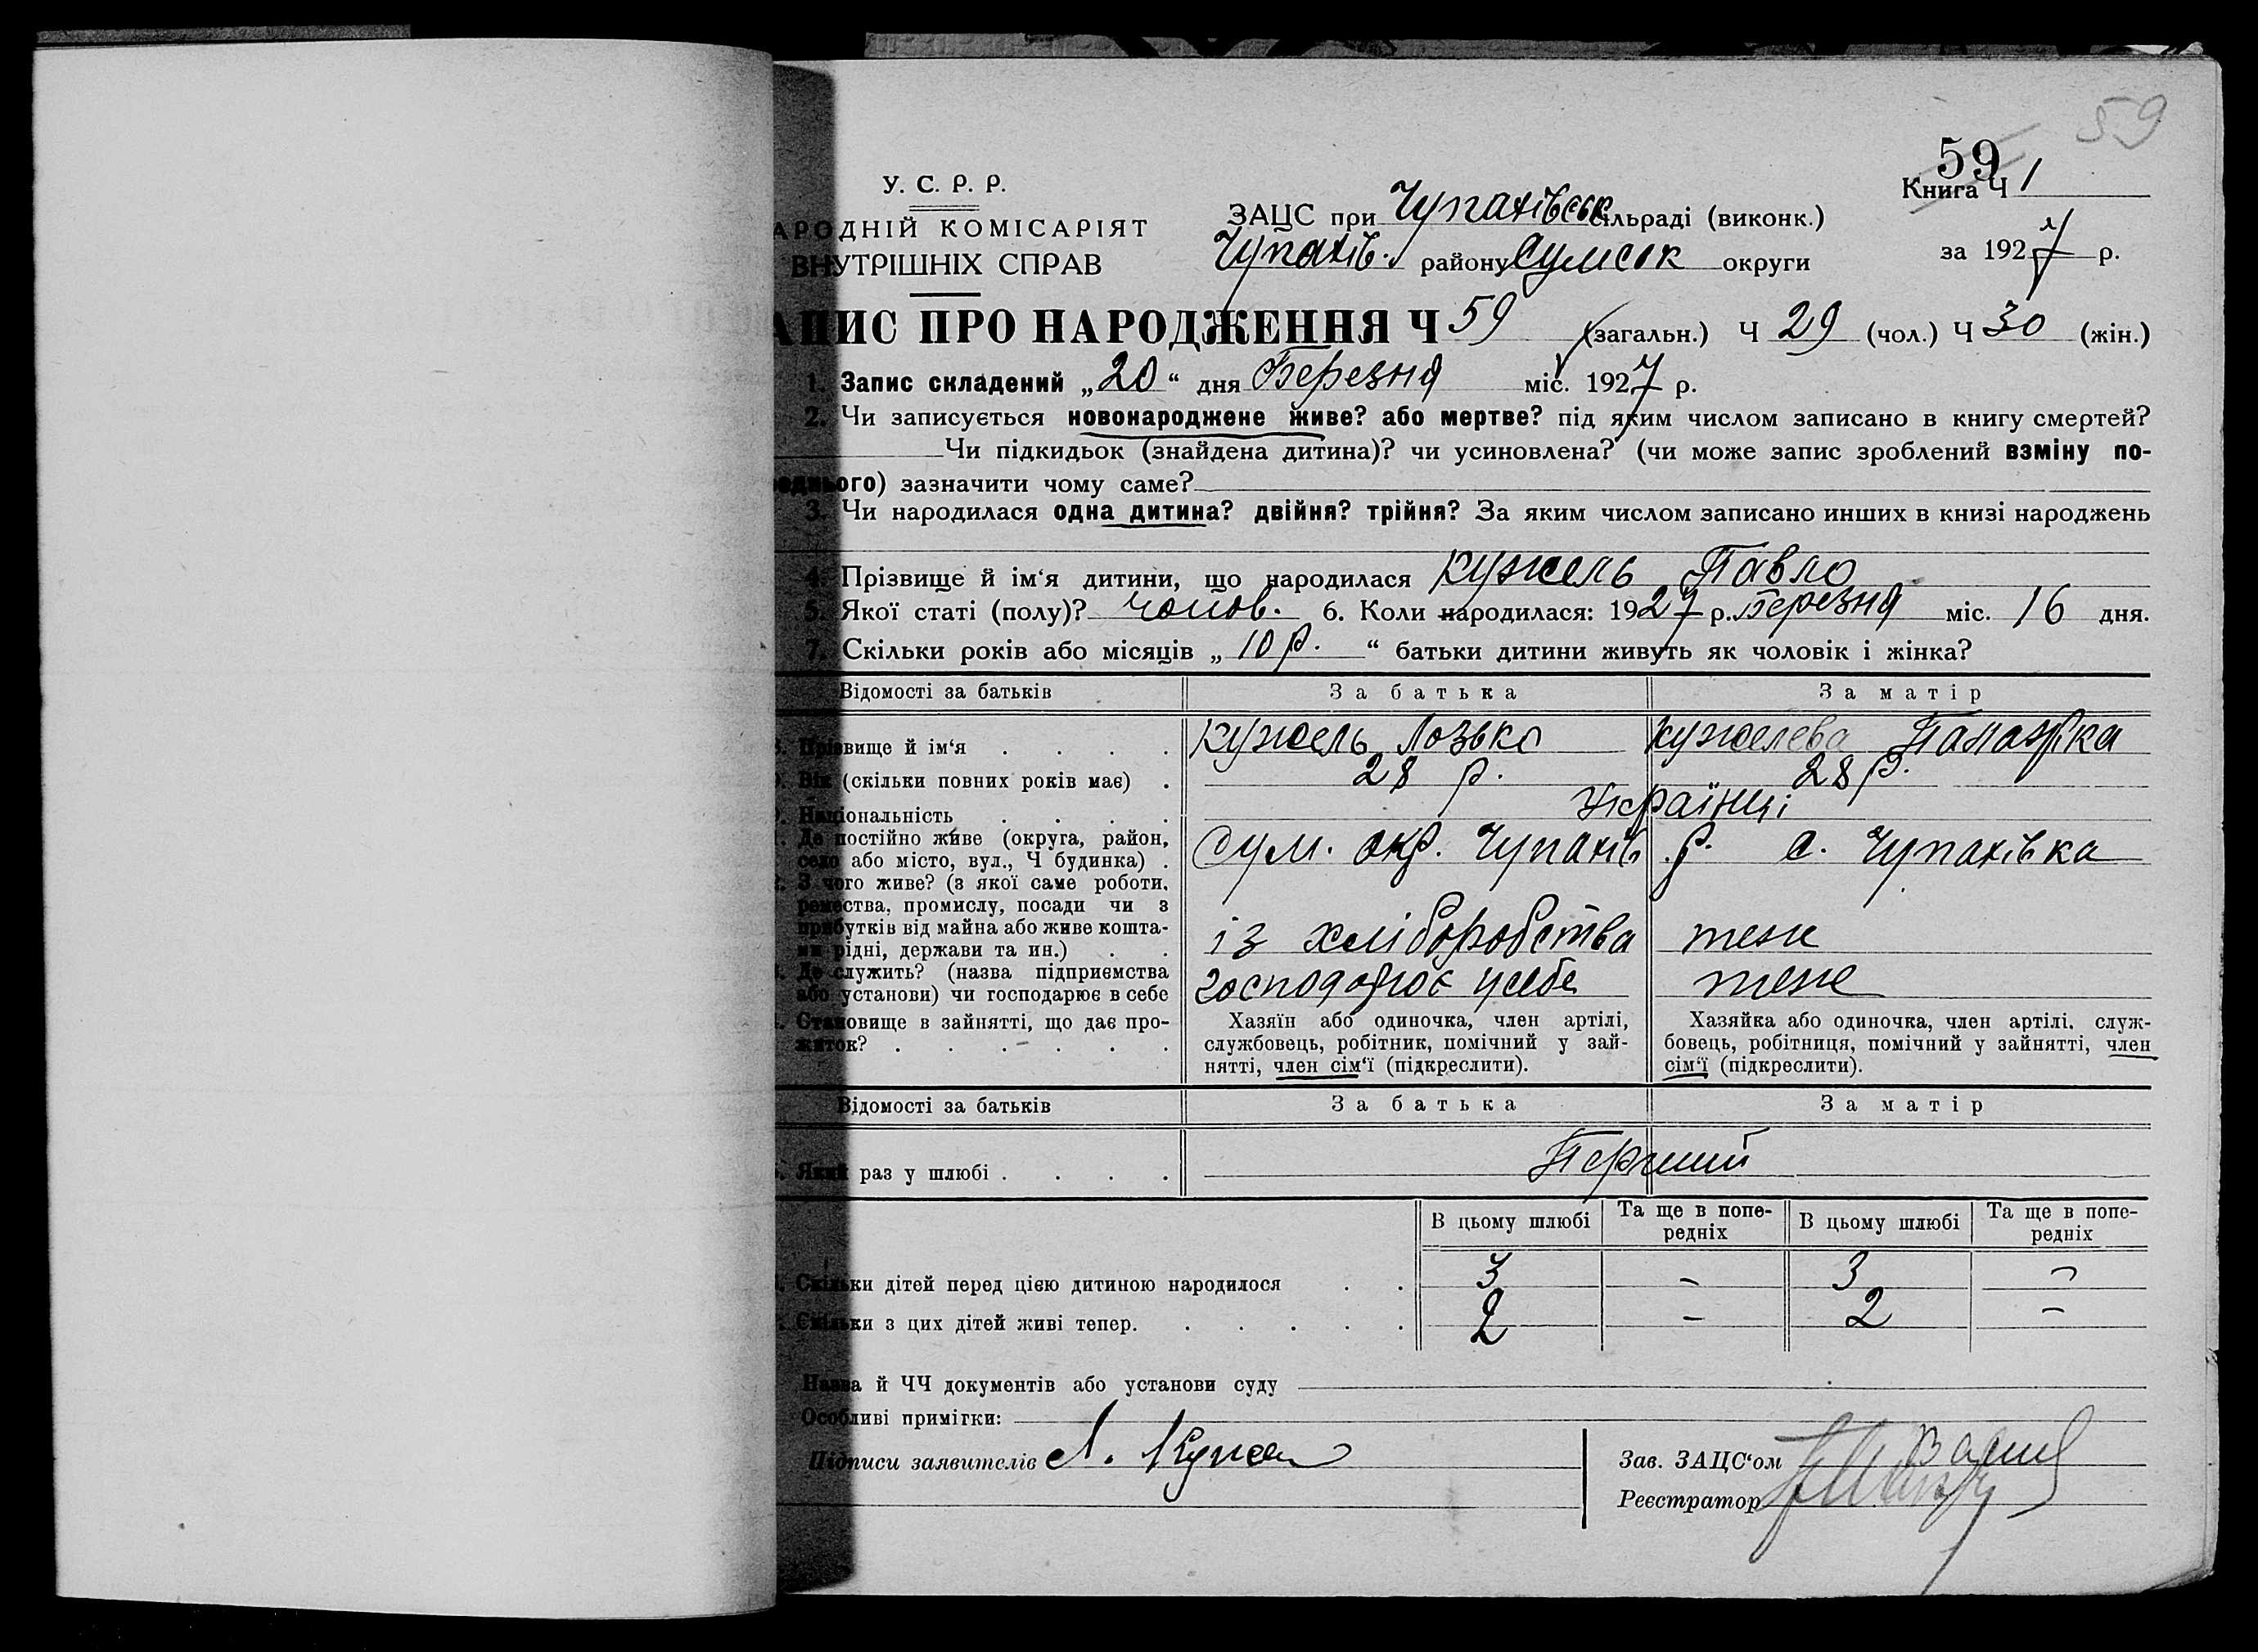 59
59
У. С. Р. Р.
Книга Ч 1
АРОДНІЙ КОМІСАРІЯТ
ВНУТРІШНІХ СПРАВ
ЗАЦС при Чупахівськ сільраді (виконк.)
Чупахів. району Сумськ округи
за 1927 р.
АПИС ПРО НАРОДЖЕННЯ Ч 59 (загальн.) Ч 29 (чол.) Ч 30 (жін.)
1. Запис складений „20“ дня Березня міс. 1927 р.
2. Чи записується новонароджене живе? або мертве? під яким числом записано в книгу смертей?
Чи підкидьок (знайдена дитина)? чи усиновлена? (чи може запис зроблений взміну по-
еднього) зазначити чому саме?
3. Чи народилася одна дитина? двійня? трійня? За яким числом записано инших в книзі народжень
4. Прізвище й ім‘я дитини, що народилася Кужель Павло
5. Якої статі (полу)? чолов. 6. Коли народилася: 1927 р. Березня міс. 16 дня.
7. Скільки років або місяців „10 р.“ батьки дитини живуть як чоловік і жінка?
Відомості за батьків За батька За матір
Прізвище й ім‘я . . . . Кужель Лозько Кужелева Палажка
Вік (скільки повних років має) . 28 р. 28 р.
Національність . . . . Українці
Де постійно живе (округа, район,
село або місто, вул., Ч будинка) . Сум. окр. Чупахів. р. с. Чупахівка
З чого живе? (з якої саме роботи,
ремества, промислу, посади чи з
прибутків від майна або живе кошта-
ми рідні, держави та ин.) . . із хліборобства теж
Де служить? (назва підприємства
або установи) чи господарює в себе господарює у себе теж
Становище в зайнятті, що дає про-
житок? . . . . . .
Хазяїн або одиночка, член артілі,
службовець, робітник, помічний у зай-
нятті, член сім‘ї (підкреслити).
Хазяйка або одиночка, член артілі, служ-
бовець, робітниця, помічний у зайнятті, член
сім‘ї (підкреслити).
Відомості за батьків За батька За матір
Який раз у шлюбі . . . . Перший
В цьому шлюбі Та ще в попе-
редніх В цьому шлюбі Та ще в попе-
редніх
Скільки дітей перед цією дитиною народилося . . 3 - 3 -
Скільки з цих дітей живі тепер. . . . . . 2 - 2 -
Назва й ЧЧ документів або установи суду
Особливі примітки:
Підписи заявителів Л. Кужел
Зав. ЗАЦС‘ом
Реєстратор